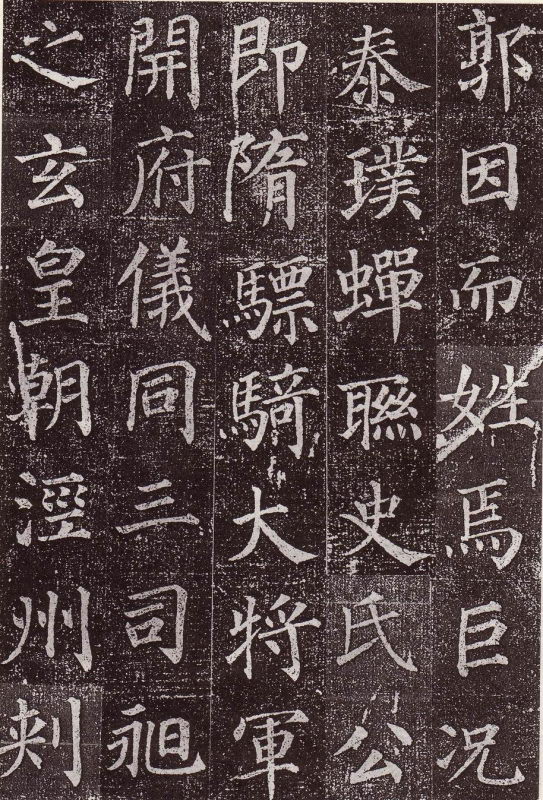 郭因而姓焉巨況
泰璞蟬聯史氏公
即隋驃騎大將軍
開府儀同三司昶
之玄皇朝涇州刺